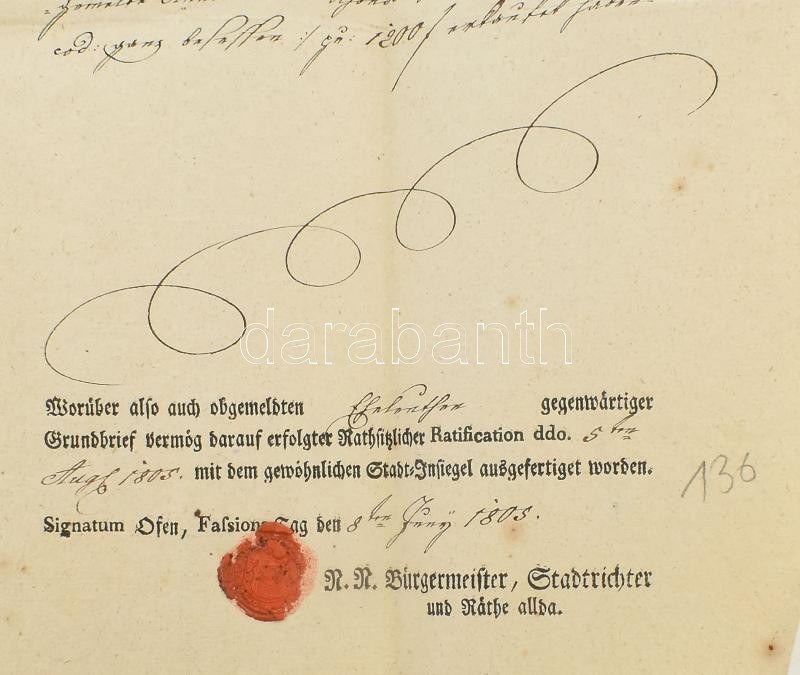 cod: ganz besessen :/ pr: 1200 f erkaufet haben
darabanth
Worüber also auch obgemeldten Eheleuthen gegenwärtiger
Grundbrief vermög darauf erfolgter Rathsitzlicher Ratification ddo. 5ten
Augt 1805. mit dem gewöhnlichen Stadt-Insiegel ausgefertiget worden.
136
Signatum Ofen, Fassions Tag den 8ten Juny 1805.
N. N. Bürgermeister, Stadtrichter
und Räthe allda.